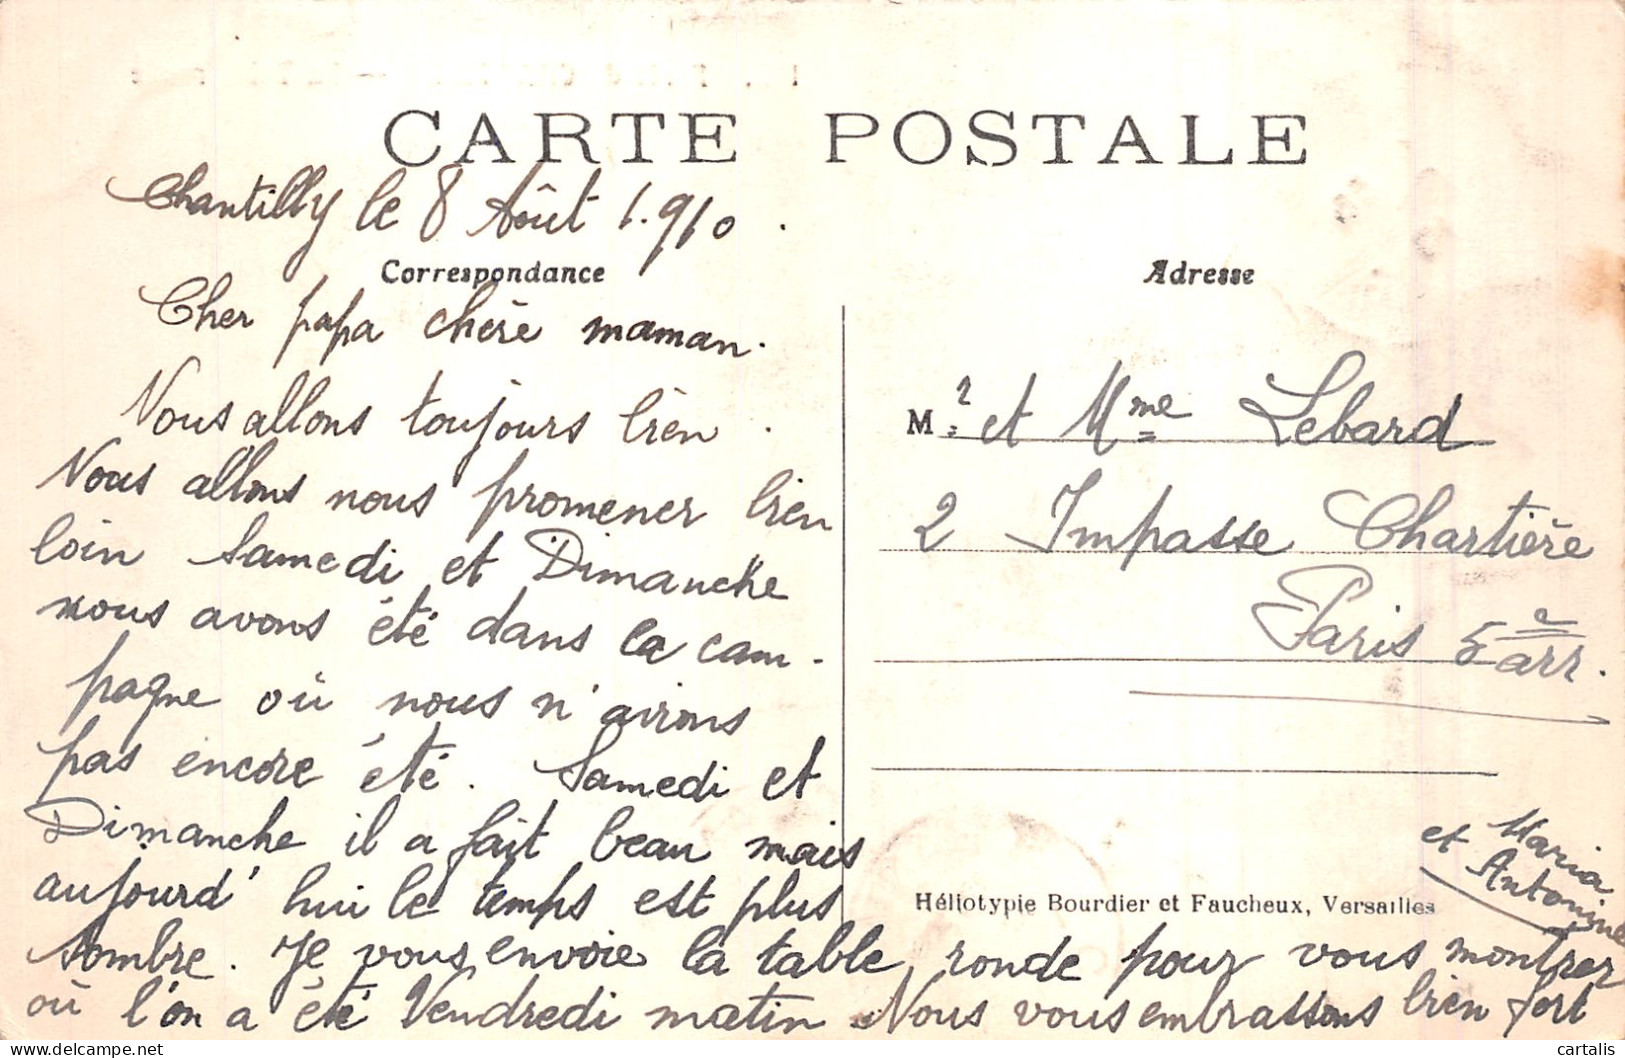 CARTE POSTALE
Chantilly le 8 Août 1.910.
Correspondance
Cher papa chère maman.
Nous allons toujours bien.
Nous allons nous promener bien
loin Samedi et Dimanche
nous avons été dans la cam-
pagne où nous n'avions
pas encore été. Samedi et
Dimanche il a fait beau mais
aujourd'hui le temps est plus
sombre. Je vous envoie la table ronde pour vous montrer
où l'on a été Vendredi matin. Nous vous embrassons bien fort
Maria
et Antonine
Adresse
M.r et Mme Lebard
2 Impasse Chartière
Paris 5e arr.
Héliotypie Bourdier et Faucheux, Versailles
cartalis